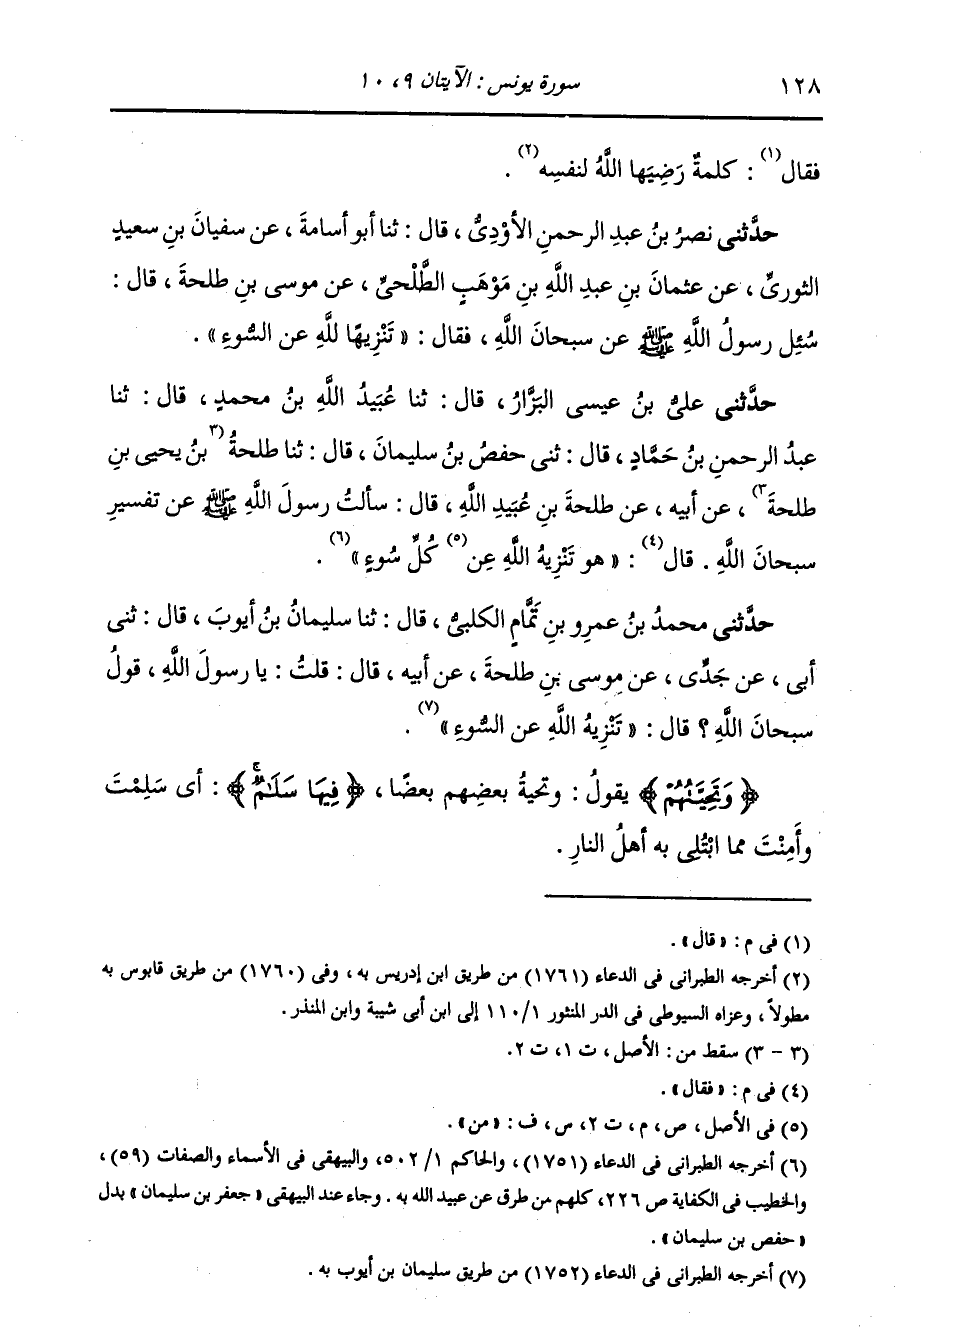 ١٢٨ سورة يونس : الآيتان ٩ ، ١٠
فقال(١) : كلمةٌ رَضِيَها اللَّهُ لنفسِه(٢) .
حدَّثنى نصرُ بنُ عبدِ الرحمنِ الأَوْدِىُّ ، قال : ثنا أبو أسامةَ ، عن سفيانَ بنِ سعيدٍ
الثورىِّ ، عن عثمانَ بنِ عبدِ اللَّهِ بنِ مَوْهَبٍ الطَّلْحىِّ ، عن موسى بنِ طلحةَ ، قال :
سُئِل رسولُ اللَّهِ ﷺ عن سبحانَ اللَّهِ ، فقال : « تَنْزِيهًا للَّهِ عن السُّوءِ » .
حدَّثنى علىُّ بنُ عيسى البَزَّارُ ، قال : ثنا عُبَيدُ اللَّهِ بنُ محمدٍ ، قال : ثنا
عبدُ الرحمنِ بنُ حَمَّادٍ ، قال : ثنى حفصُ بنُ سليمانَ ، قال : ثنا طلحةُ (٣بنُ يحيى بنِ
طلحةَ٣) ، عن أبيه ، عن طلحةَ بنِ عُبَيدِ اللَّهِ ، قال : سألتُ رسولَ اللَّهِ ﷺ عن تفسيرِ
سبحانَ اللَّهِ . قال(٤) : « هو تَنْزِيهُ اللَّهِ عن(٥) كُلِّ سُوءٍ »(٦) .
حدَّثنى محمدُ بنُ عمرِو بنِ تَمَّامٍ الكلبىُّ ، قال : ثنا سليمانُ بنُ أيوبَ ، قال : ثنى
أبى ، عن جَدِّى ، عن موسى بنِ طلحةَ ، عن أبيه ، قال : قلتُ : يا رسولَ اللَّهِ ، قولُ
سبحانَ اللَّهِ ؟ قال : « تَنْزِيهُ اللَّهِ عن السُّوءِ »(٧) .
﴿ وَتَحِيَّتُهُمْ ﴾ يقولُ : وتحيةُ بعضِهم بعضًا ، ﴿ فِيهَا سَلَٰمٌ ﴾ : أى سَلِمْتَ
وأَمِنْتَ مما ابْتُلِى به أهلُ النارِ .
(١) فى م : « قال » .
(٢) أخرجه الطبرانى فى الدعاء (١٧٦١) من طريق ابن إدريس به ، وفى (١٧٦٠) من طريق قابوس به
مطولاً ، وعزاه السيوطى فى الدر المنثور ١/ ١١٠ إلى ابن أبى شيبة وابن المنذر .
(٣ - ٣) سقط من : الأصل ، ت ١، ت ٢.
(٤) فى م : « فقال » .
(٥) فى الأصل ، ص ، م ، ت ٢، س ، ف : « من » .
(٦) أخرجه الطبرانى فى الدعاء (١٧٥١) ، والحاكم ١/ ٥٠٢، والبيهقى فى الأسماء والصفات (٥٩) ،
والخطيب فى الكفاية ص ٢٢٦، كلهم من طرق عن عبيد الله به . وجاء عند البيهقى « جعفر بن سليمان » بدل
« حفص بن سليمان » .
(٧) أخرجه الطبرانى فى الدعاء (١٧٥٢) من طريق سليمان بن أيوب به .